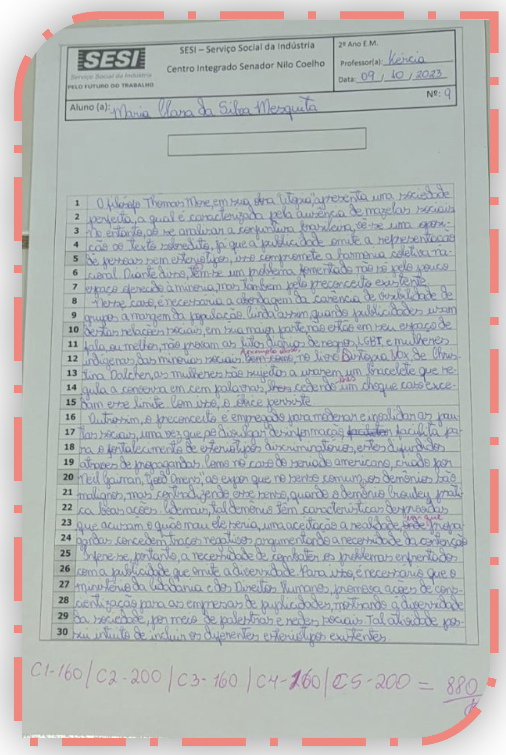 SESI
Serviço Social da Indústria
PELO FUTURO DO TRABALHO
SESI – Serviço Social da Indústria
Centro Integrado Senador Nilo Coelho
2º Ano E.M.
Professor(a): Kercia
Data: 09 / 10 / 2023
Aluno (a): Maria Clara da Silva Mesquita
Nº: 9
1 O filósofo Thomas More, em sua obra "Utopia", apresenta uma sociedade
2 perfeita, a qual é caracterizada pela ausência de mazelas sociais
3 no entanto, ao se analisar a conjuntura brasileira, vê-se uma oposi-
4 ção ao texto sobredito, já que a publicidade omite a representação
5 de pessoas sem estereótipos, isso compromete a harmonia coletiva na-
6 cional. Diante disso, tem-se um problema fomentado não só pelo pouco
7 espaço oferecido à minoria, mas também pelo preconceito existente.
8 Nesse caso, é necessária a abordagem da carência de visibilidade de
9 grupos a margem da população, ainda assim, quando publicidades usam
10 dessas relações sociais, em sua maior parte, não estão em seu espaço de
11 fala, ou melhor, não provam as lutas diárias de negros, LGBT, e mulheres
12 indígenas, das minorias sociais bem como, no livro Distopia Vox de Chris-
A exemplo disso,
13 tina Dalcher, as mulheres são sujeitas a usarem um bracelete que re-
14 gula a conversa em cem palavras, cedendo um choque caso exce-
15 dam esse limite. Com isso, o ótica persiste
16 Outrossim, o preconceito é empregado para moderar e invalidar as pau-
17 tas sociais, uma vez que ao divulgar desinformação facilita pa-
18 ra o fortalecimento de estereótipos discriminatórios, estes difundidos
19 através de propagandas. Como no caso do seriado americano, criado por
20 Neil Gaiman, "Good Omens", ao expor que no senso comum, os demônios são
21 malignos, mas contradizendo esse senso, quando o demônio Crowley prati-
22 ca boas ações. Ademais, tal demônio têm características de pragas
23 que acusam o quão mau ele seria, uma aceitação a realidade
24 gandas concedem traços negativos argumentando a necessidade da correção
25 Infere-se, portanto, a necessidade de combater os problemas enfrentados
26 com a publicidade que omite a diversidade. Para isso, é necessário que o
27 ministério da Cidadania e dos Direitos Humanos, promova ações de cons-
28 cientização para as empresas de publicidades, mostrando a diversidade
29 da sociedade, por meio de palestras e redes sociais. Tal atividade pos-
30 sui intuito de incluir os diferentes estereótipos existentes
C1-160 / C2-200 / C3-160 / C4-160 / C5-200 = 880